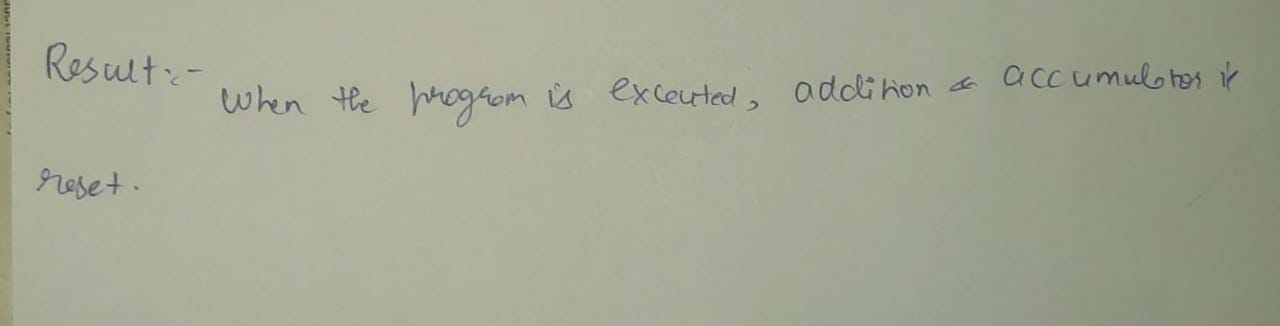 Result:-
When the program is excuted, addition & accumulator is
reset.